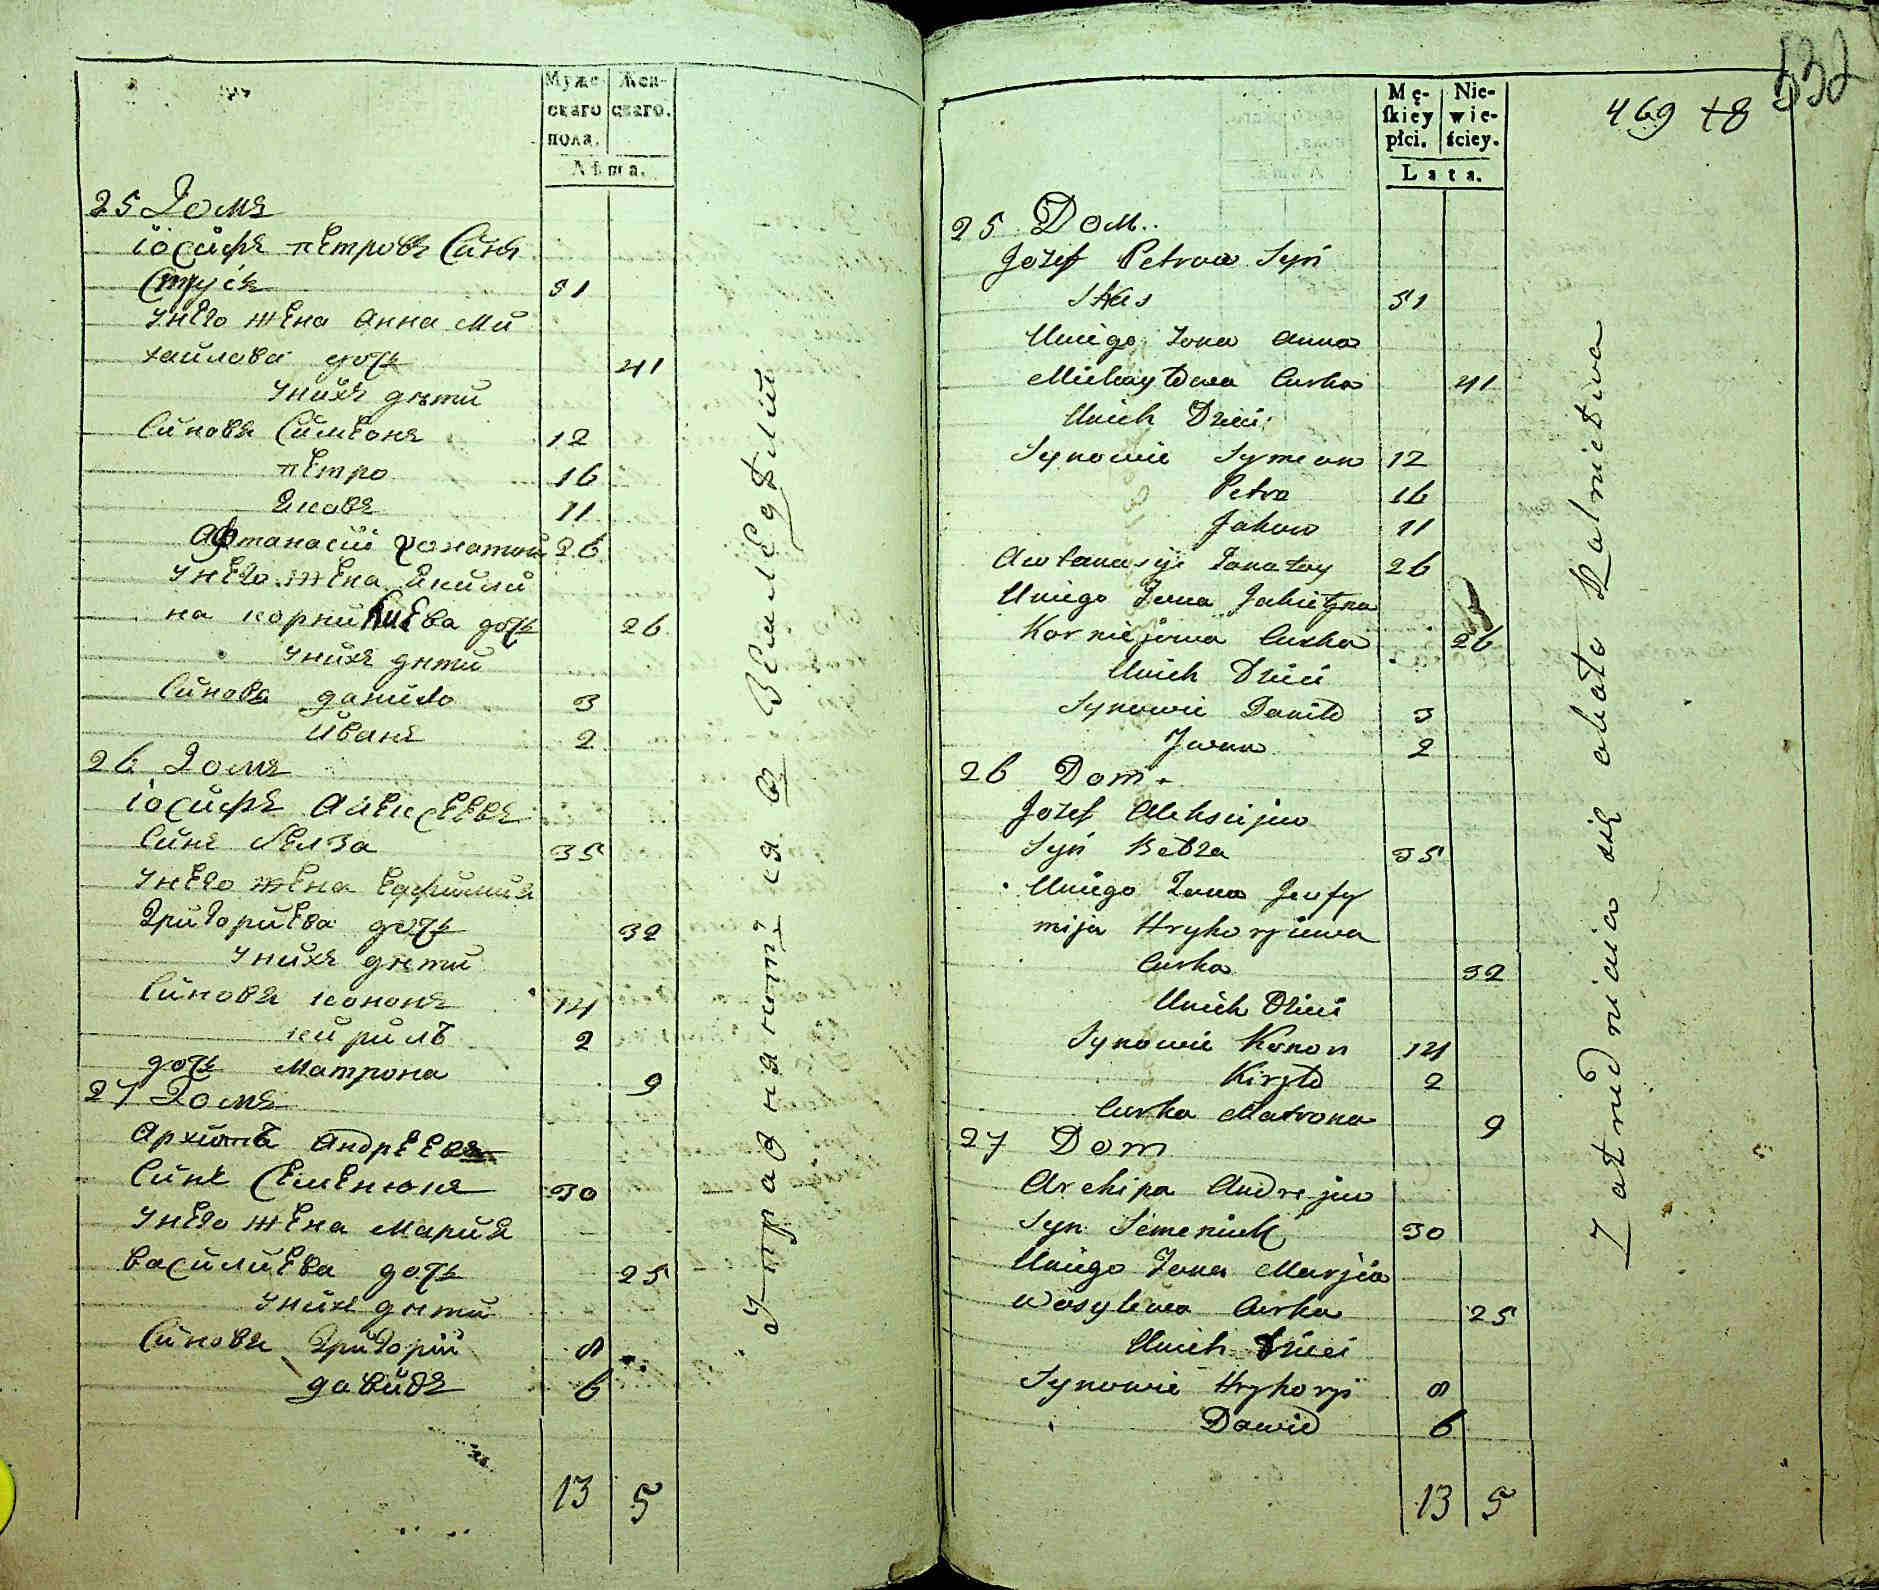 Муже-
скаго
пола.
Жен-
скаго.
Лѣта.
25 Домъ
іосифъ петровъ Синъ
Струсъ 51
Унего жена Анна Ми
хайлова дочь 41
Унихъ дети
Синовя Симеонъ 12
петро 16
Яковъ 11
Афтанасій 26
Унего жена Якили
на дочь 26
Унихъ дети
Синовя данило 3
иванъ 2
26 Домъ
іосифъ Алексеевъ
Синъ 35
Унего жена Еффимия
Григориева дочь 32
Унихъ дети
Синовя кононъ 14
кирилъ 2
дочь Матрона 9
27 Домъ
Архипъ Андреевъ
Синъ Семенюкъ 30
Унего жена Мария
Василиева дочь 25
Унихъ дети
Синовя Григорій 8
давидъ 6
13 5
Упражняются в Земледѣлии
532
469 +8
Mę-
skiey
płci.
Nie-
wie-
ściey.
Lata.
25 Dом..
Jozef Petrow Syn
51
Uniego Zona Anna
Michayłowa Curka 41
Unich Dzieci
Synowie Symeon 12
Petro 16
Jakow 11
Awtanasyi 26
Uniego Zona
Korniejowa Curka 26
Unich Dzieci
Synowie Daniło 3
Jwan 2
26 Dom.
Jozef Aleksiejew
Syn Bełza 35
Uniego Zona Jeufy
mija Hryhoryiewa
Curka 32
Unich Dzieci
Synowie Konon 14
Kiryło 2
Curka Matrona 9
27 Dom
Archipa Andrejew
Syn Semeniuk 30
Uniego Zona Marjia
Wasylewa Curka 25
Unich Dzieci
Synowie Hryhoryi 8
Dawid 6
13 5
Zatrudniaią się około Rolnictwa